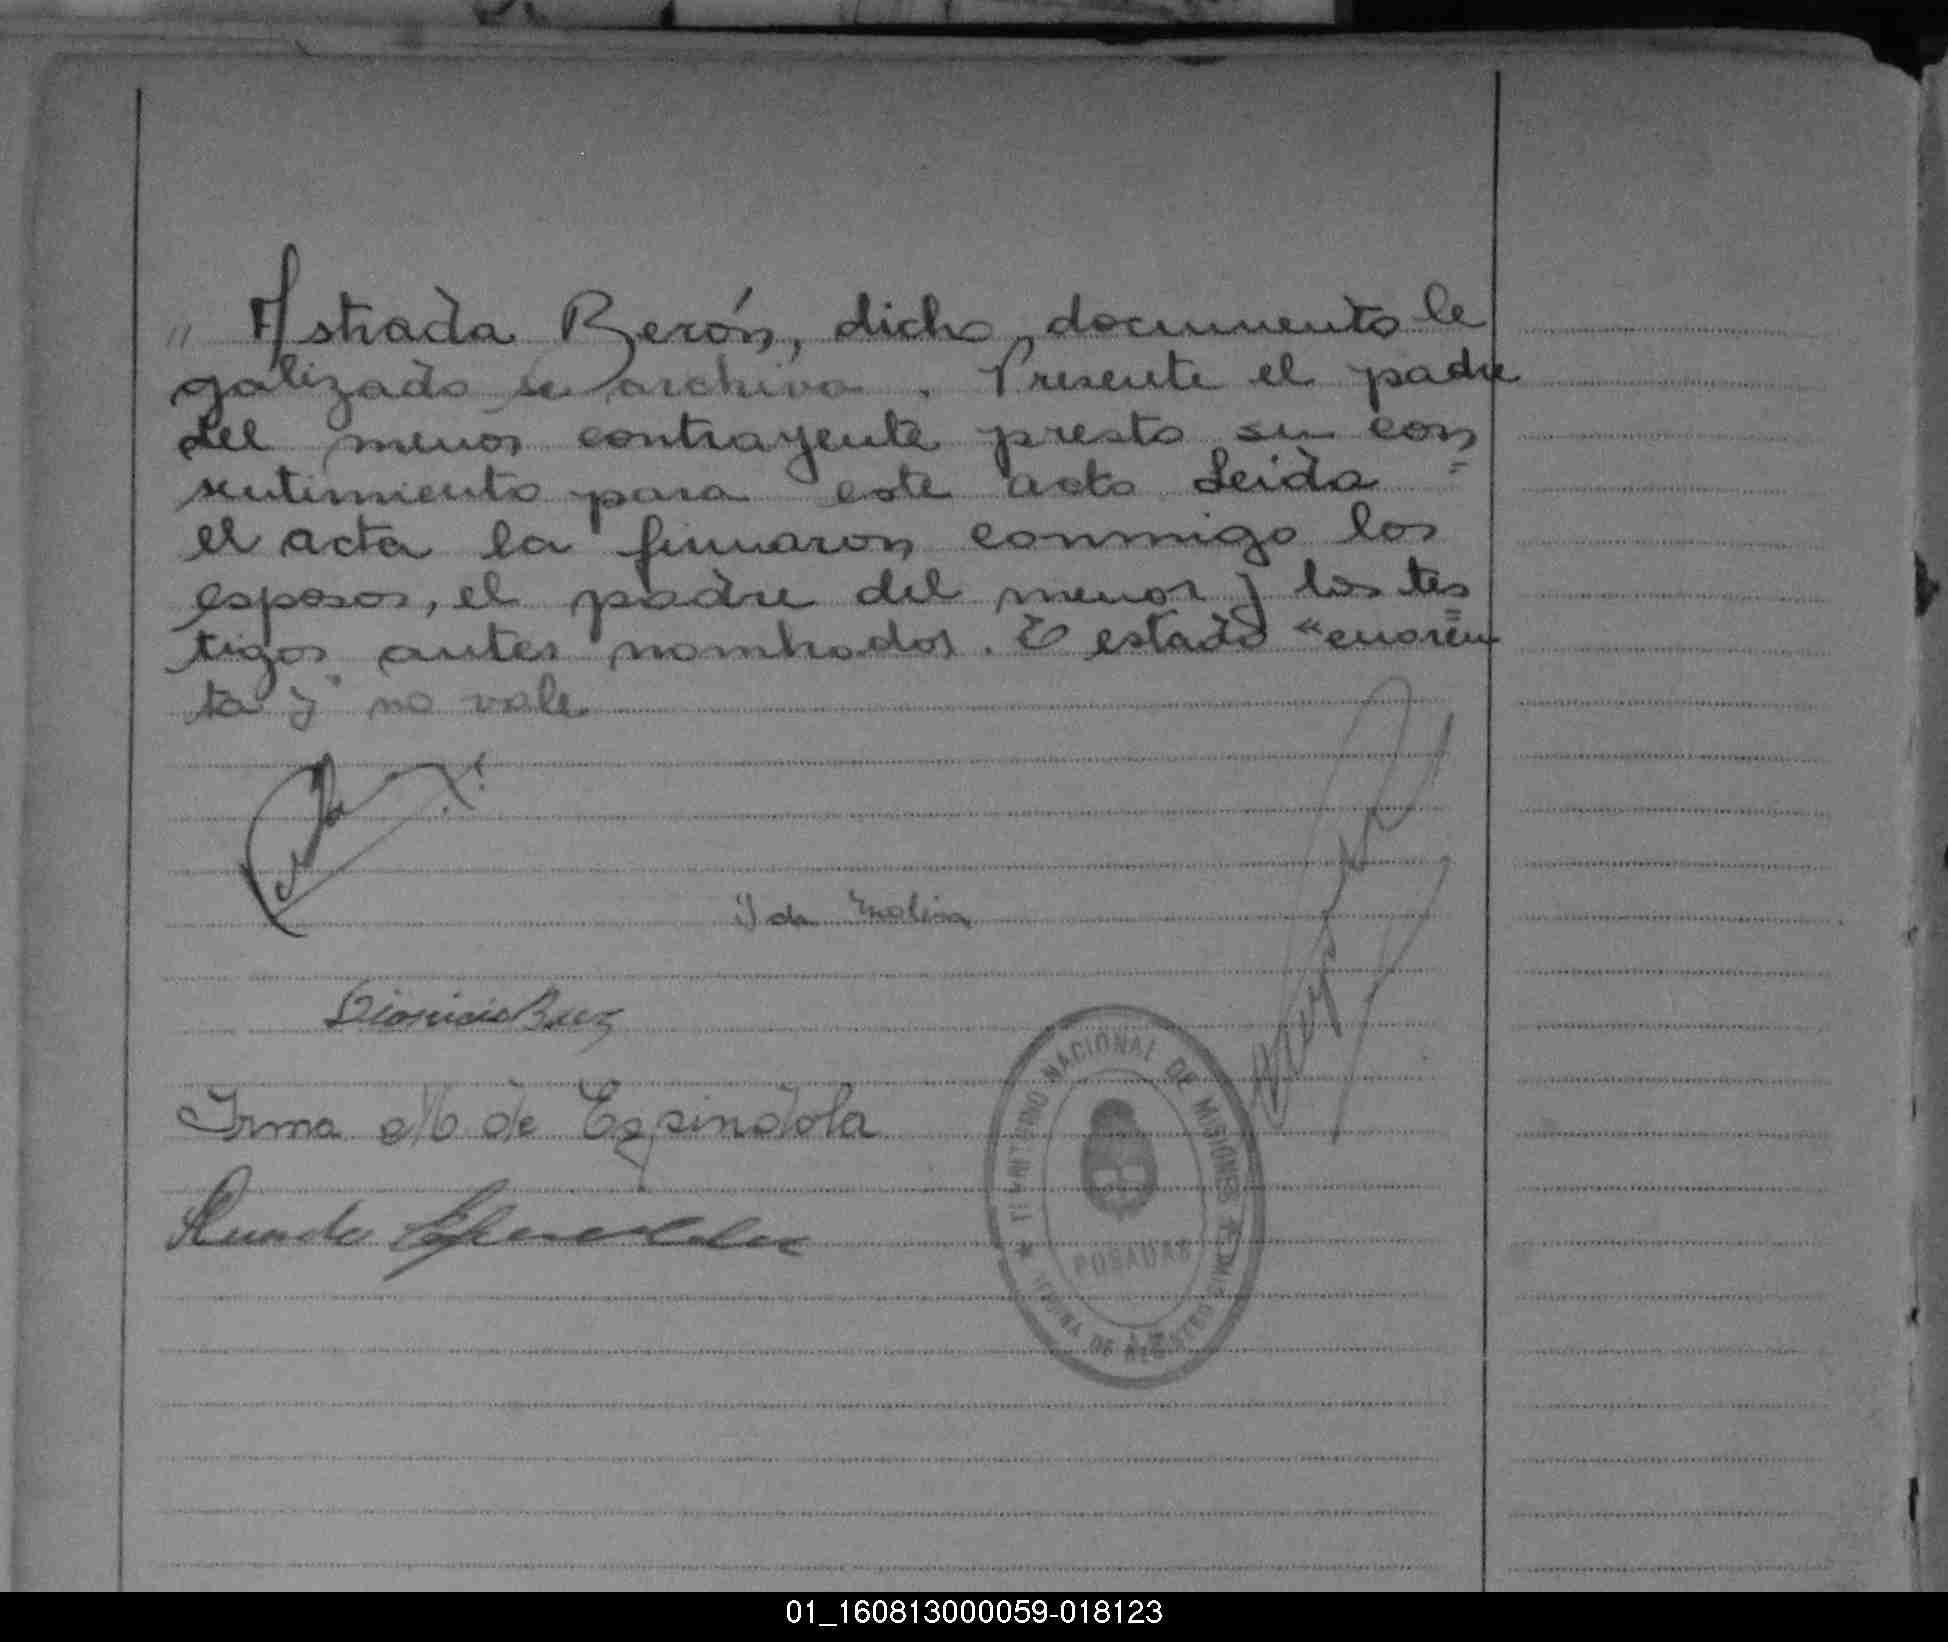 " Astrada Berón, dicho documento le
galizado se archiva. Presente el padre
del menor contrayente presto su con
sentimiento para este acto Leida =
el acta la firmaron conmigo los
esposos, el padre del menor y los tes
tigos antes nombrados. E estado "cuaren=
ta y" no vale
Ida Molina
Dionicio Baez
Irma M de Espindola
TERRITORIO NACIONAL DE MISIONES
POSADAS
OFICINA DE REGISTRO CIVIL
01_160813000059-018123